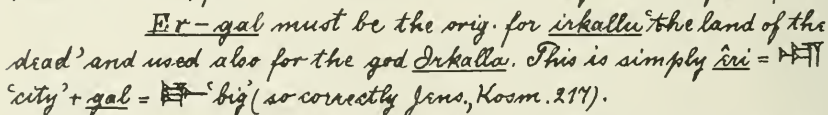 Er-gal must be the orig. for irkallu 'the land of the
dead' and used also for the god Irkalla. This is simply êri = 𒌷
'city' + gal = 𒃲 'big' (so correctly Jens., Kosm. 217).